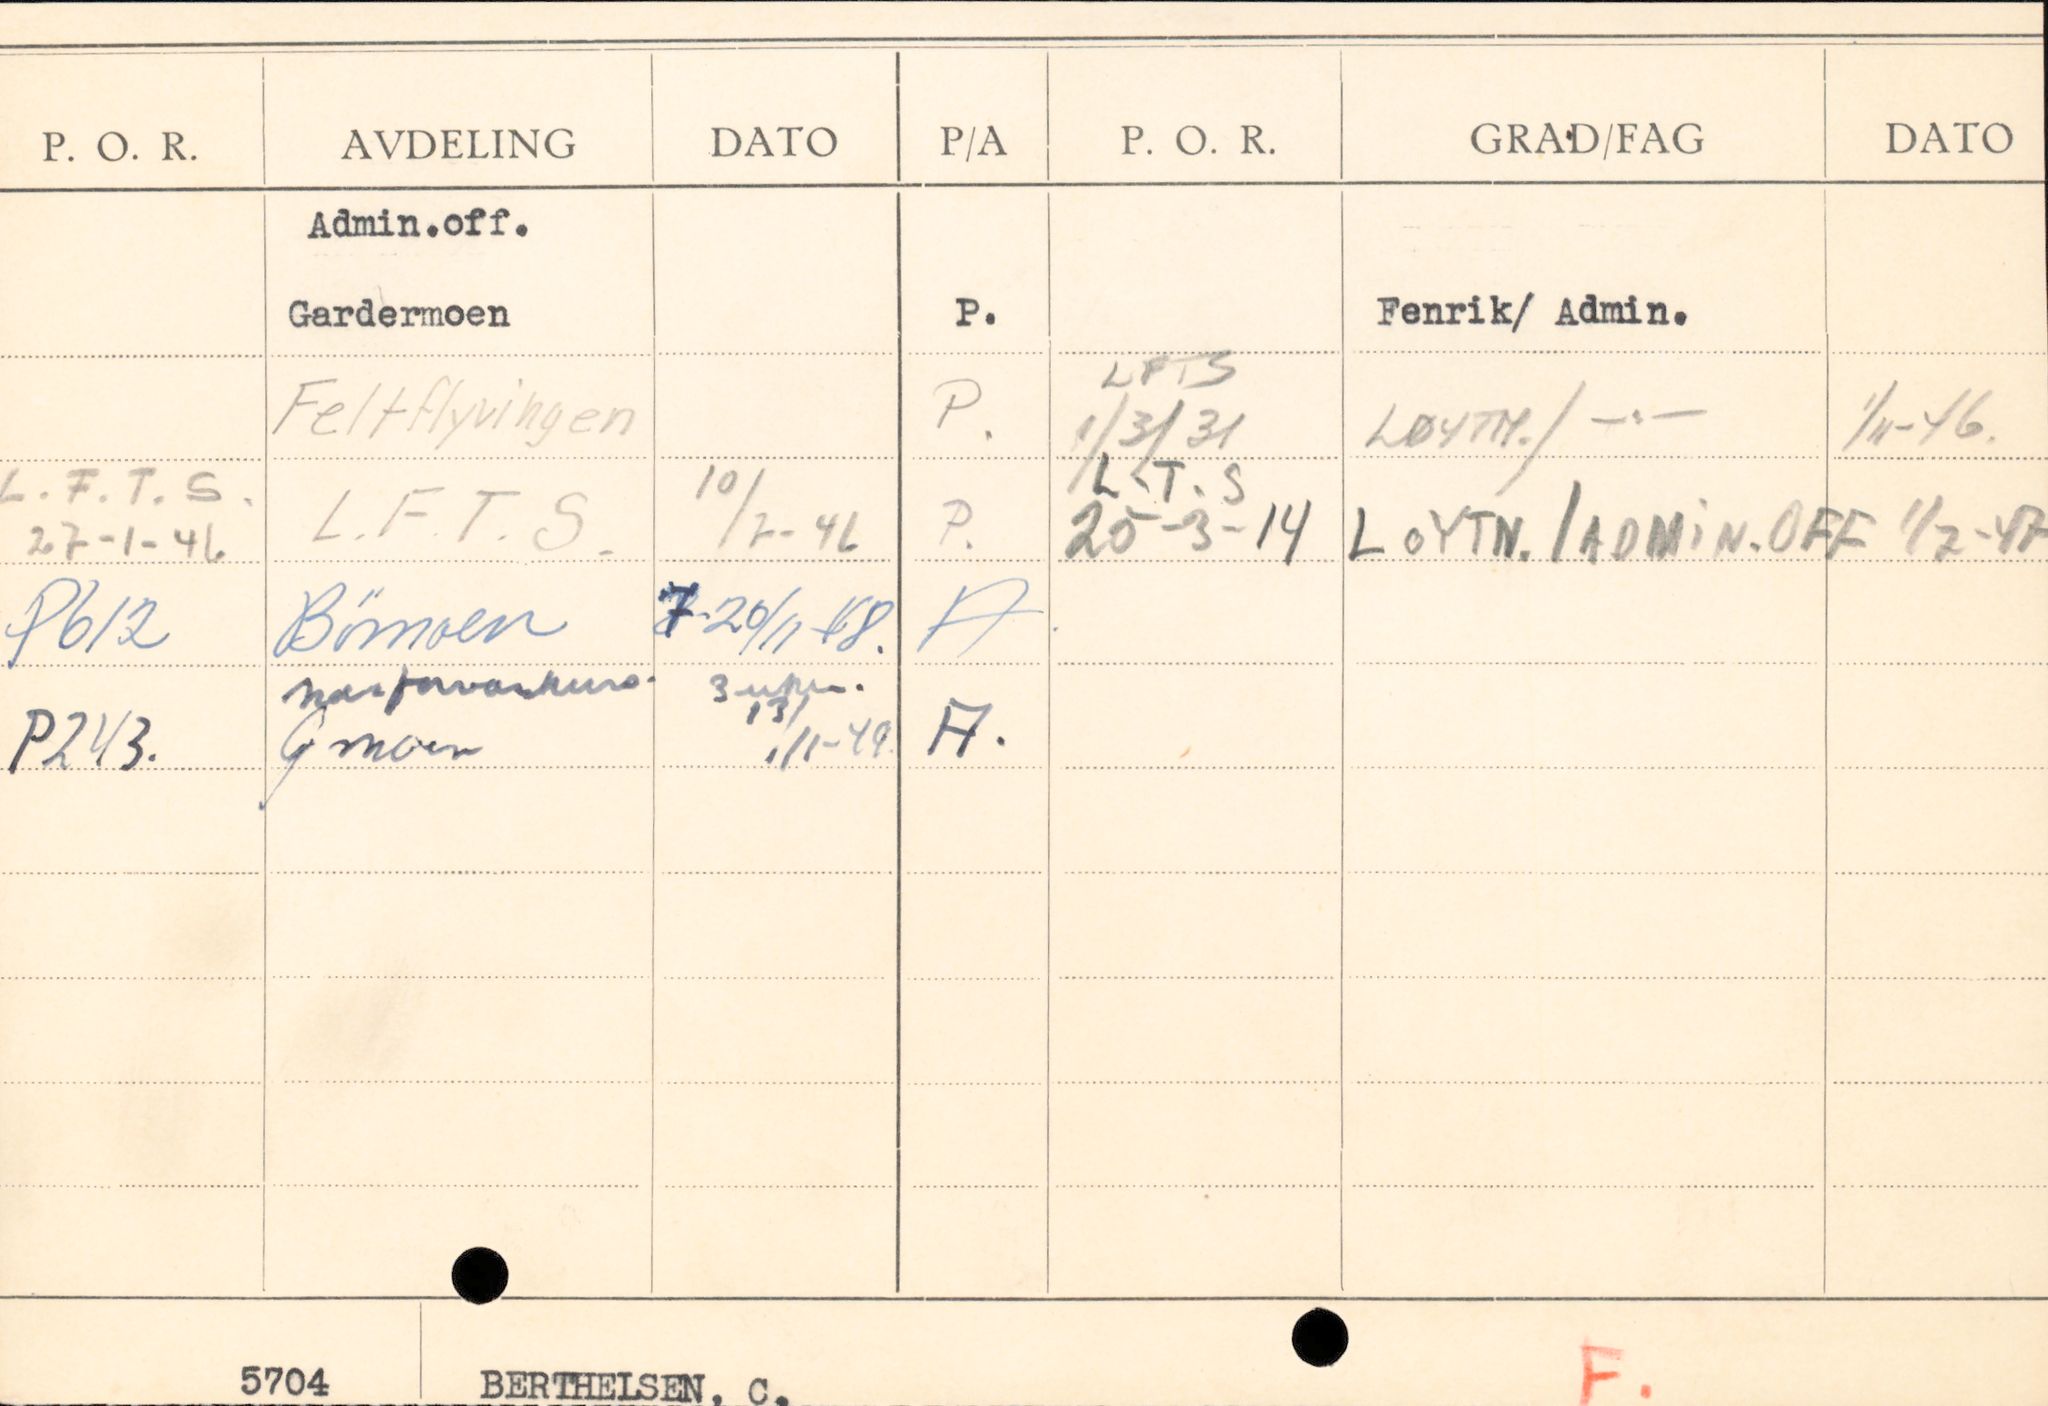 P. O. R. AVDELING DATO P/A P. O. R. GRAD/FAG DATO
Admin.off.
Gardermoen P. Fenrik/ Admin.
LFTS
Feltflyvingen P. 1/3/31 LØYTN./ —·— 1/11-46.
L.F.T.S. 10/2-46 L.F.T.S
27-1-46 L.F.T.S. P. 25-3-14 LØYTN./ADMIN.OFF 1/2-47
P612 Bömoen 7-20/11-48. A
3 uker.
P243. Gmoen 13/ 1/1-49. A.
5704 BERTHELSEN, C. F.